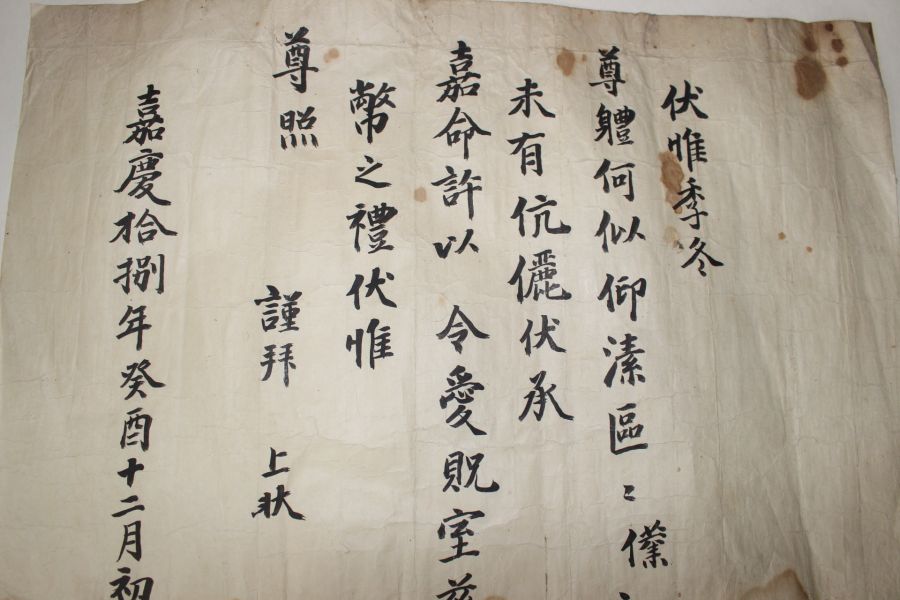 伏惟季冬
尊軆何似仰溸區〻僕
未有伉儷伏承
嘉命許以 令愛貺室玆
幣之禮伏惟
尊照 謹拜 上狀
嘉慶拾捌年癸酉十二月初